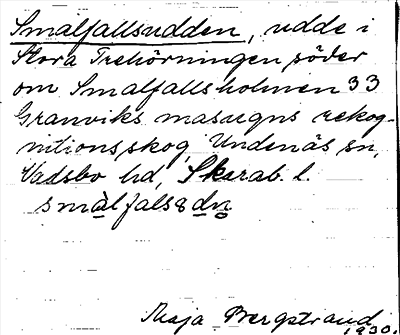 Smalfallsudden, udde i
Stora Trehörningen söder
om Smalfallsholmen 33
Granviks masugns rekog-
nitionsskog, Undenäs sn,
Vadsbo hd, Skarab. l.
Maja Bergstrand
1930.